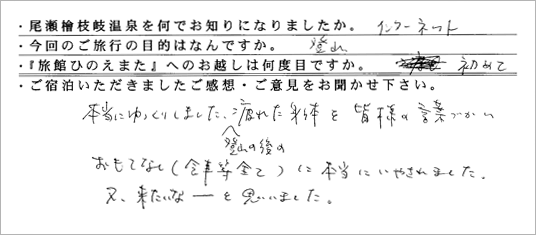 ・尾瀬檜枝岐温泉を何でお知りになりましたか。 インターネット
・今回のご旅行の目的はなんですか。 登山
・『旅館ひのえまた』へのお越しは何度目ですか。 初めて
・ご宿泊いただきましたご感想・ご意見をお聞かせ下さい。
本当にゆっくりしました、疲れた身体を皆様の言葉づかい
登山の後の
おもてなし(食事等全て)に本当にいやされました。
又、来たいなーと思いました。